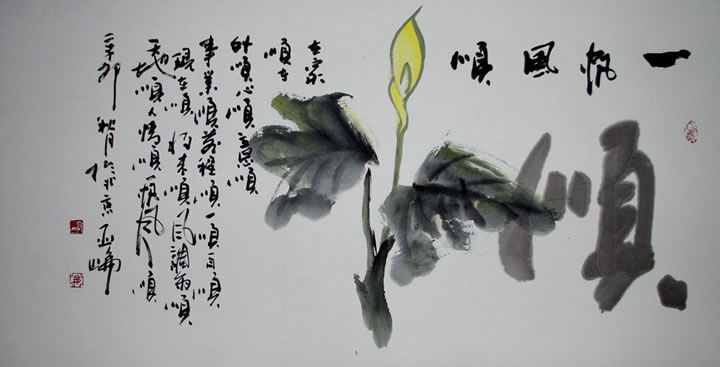 一帆風順
順
在家
順在
外順心順意順
事業順前程順一順百順
現在順將來順風調雨順
天地順人情順一帆風順
辛卯秋月於北京